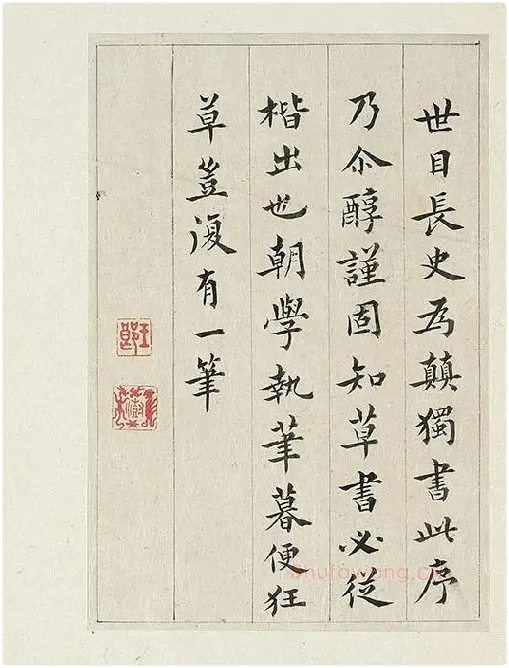 世目長史為顛獨書此序
乃尒醇謹固知草書必從
楷出也朝學執筆暮便狂
草豈復有一筆